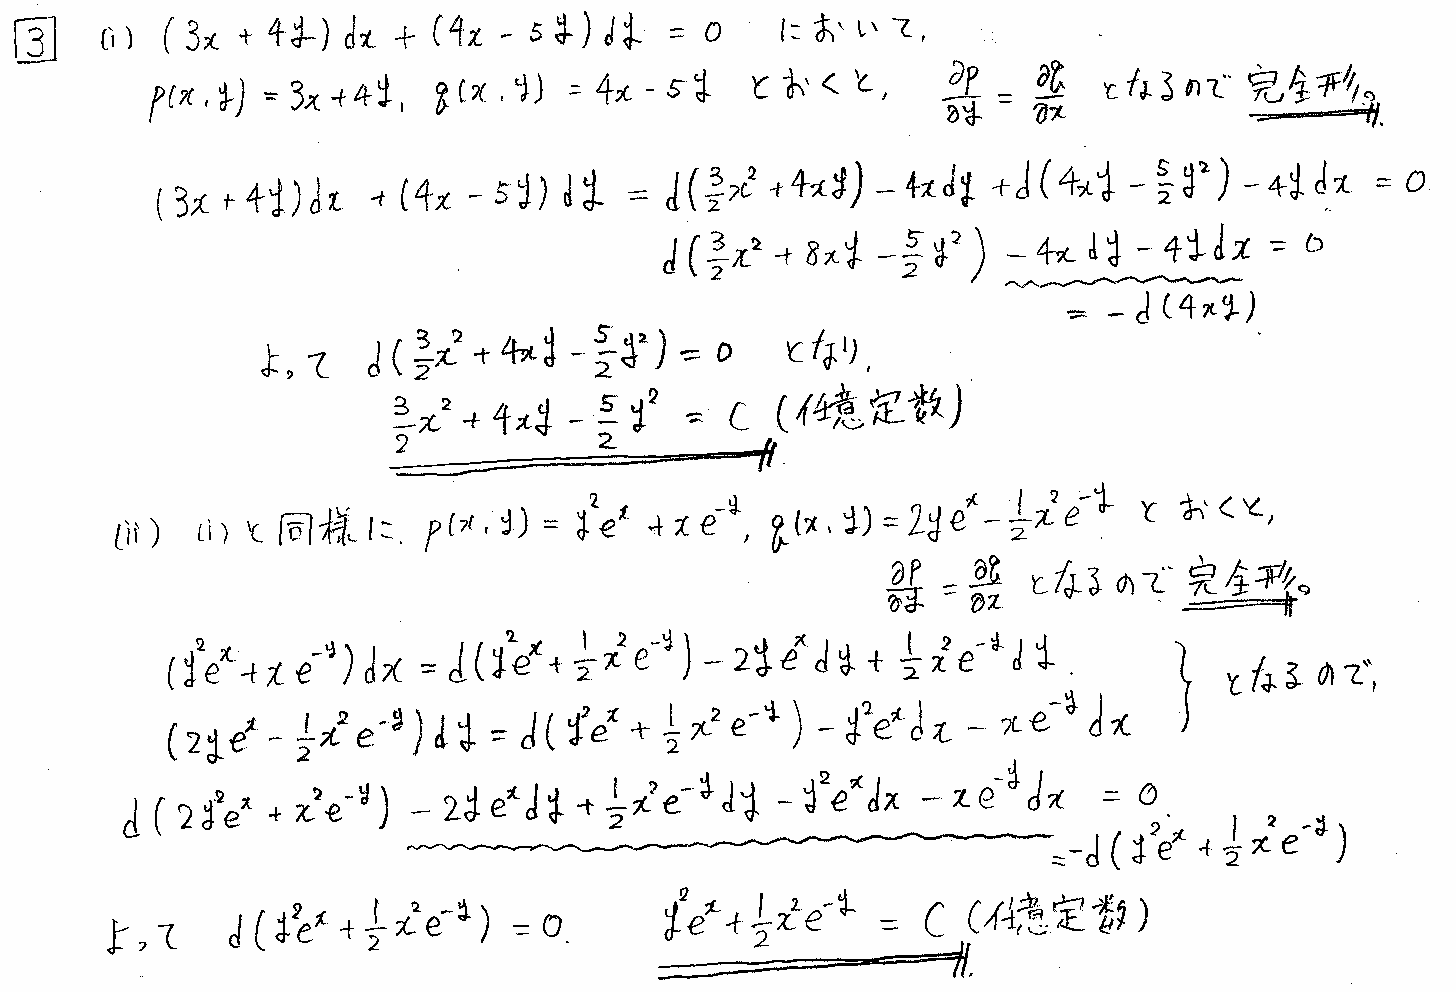 3 (i) (3x + 4y)dx + (4x - 5y)dy = 0 において,
p(x, y) = 3x + 4y, q(x, y) = 4x - 5y とおくと, ∂p/∂y = ∂q/∂x となるので 完全形。
(3x + 4y)dx + (4x - 5y)dy = d(3/2 x² + 4xy) - 4xdy + d(4xy - 5/2 y²) - 4ydx = 0
d(3/2 x² + 8xy - 5/2 y²) - 4xdy - 4ydx = 0
= -d(4xy)
よって d(3/2 x² + 4xy - 5/2 y²) = 0 となり,
3/2 x² + 4xy - 5/2 y² = C (任意定数)
(ii) (i)と同様に, p(x, y) = y²eˣ + xe⁻ʸ, q(x, y) = 2yeˣ - 1/2 x²e⁻ʸ とおくと,
∂p/∂y = ∂q/∂x となるので 完全形。
(y²eˣ + xe⁻ʸ)dx = d(y²eˣ + 1/2 x²e⁻ʸ) - 2yeˣdy + 1/2 x²e⁻ʸdy } となるので,
(2yeˣ - 1/2 x²e⁻ʸ)dy = d(y²eˣ + 1/2 x²e⁻ʸ) - y²eˣdx - xe⁻ʸdx
d(2y²eˣ + x²e⁻ʸ) - 2yeˣdy + 1/2 x²e⁻ʸdy - y²eˣdx - xe⁻ʸdx = 0
= -d(y²eˣ + 1/2 x²e⁻ʸ)
よって d(y²eˣ + 1/2 x²e⁻ʸ) = 0. y²eˣ + 1/2 x²e⁻ʸ = C (任意定数)